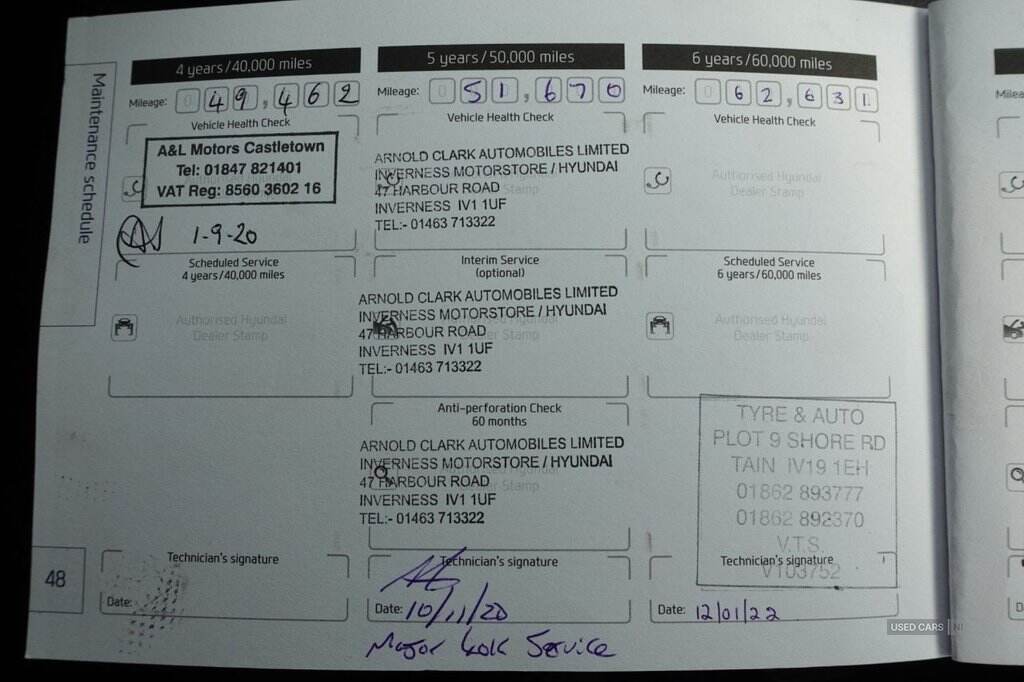 Maintenance schedule
48
4 years/40,000 miles
Mileage: 0 49,462
Vehicle Health Check
A&L Motors Castletown
Tel: 01847 821401
VAT Reg: 8560 3602 16
1-9-20
Scheduled Service
4 years/40,000 miles
Authorised Hyundai
Dealer Stamp
Technician's signature
Date:
5 years/50,000 miles
Mileage: 0 51,670
Vehicle Health Check
ARNOLD CLARK AUTOMOBILES LIMITED
INVERNESS MOTORSTORE / HYUNDAI
47 HARBOUR ROAD
INVERNESS IV1 1UF
TEL:- 01463 713322
Interim Service
(optional)
ARNOLD CLARK AUTOMOBILES LIMITED
INVERNESS MOTORSTORE / HYUNDAI
47 HARBOUR ROAD
INVERNESS IV1 1UF
TEL:- 01463 713322
Anti-perforation Check
60 months
ARNOLD CLARK AUTOMOBILES LIMITED
INVERNESS MOTORSTORE / HYUNDAI
47 HARBOUR ROAD
INVERNESS IV1 1UF
TEL:- 01463 713322
Technician's signature
Date: 10/11/20
Major 40K Service
6 years/60,000 miles
Mileage: 0 62,631
Vehicle Health Check
Authorised Hyundai
Dealer Stamp
Scheduled Service
6 years/60,000 miles
Authorised Hyundai
Dealer Stamp
TYRE & AUTO
PLOT 9 SHORE RD
TAIN IV19 1EH
01862 893777
01862 892370
V.T.S.
V103752
Technician's signature
Date: 12/01/22
USED CARS NI